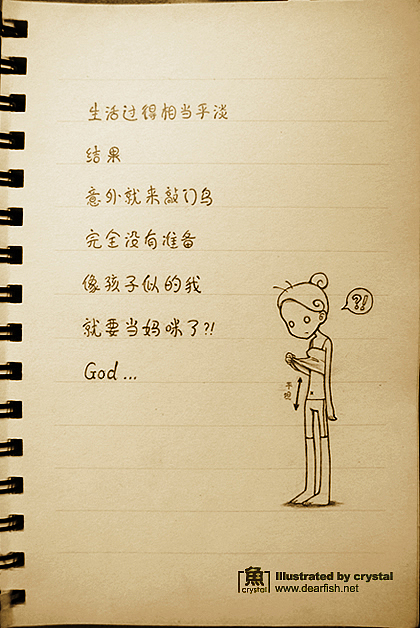 生活过得相当平淡
结果
意外就来敲门乌
完全没有准备
像孩子似的我
就要当妈咪了?!
God ...
?!
平坦
魚
crystal
Illustrated by crystal
www.dearfish.net